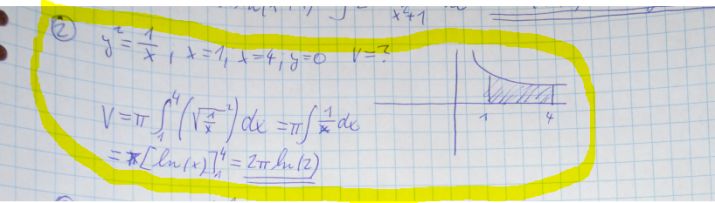 x²+1
② y² = 1/x, x=1, x=4, y=0 V=?
V = π ∫₁⁴ (√(1/x)²) dx = π∫ 1/x dx
= π[ln(x)]₁⁴ = 2π ln(2)
1 4